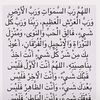 اللَّهُمَّ رَبَّ السَّمَوَاتِ وَرَبَّ الْأَرْضِ
وَرَبَّ الْعَرْشِ الْعَظِيمِ، رَبَّنَا وَرَبَّ كُلِّ
شَيْءٍ، فَالِقَ الْحَبِّ وَالنَّوَى، وَمُنْزِلَ
التَّوْرَاةِ وَالْإِنْجِيلِ وَالْفُرْقَانِ، أَعُوذُ
بِكَ مِنْ شَرِّ كُلِّ شَيْءٍ أَنْتَ آخِذٌ
بِنَاصِيَتِهِ، اللَّهُمَّ أَنْتَ الْأَوَّلُ فَلَيْسَ
قَبْلَكَ شَيْءٌ، وَأَنْتَ الْآخِرُ فَلَيْسَ
بَعْدَكَ شَيْءٌ، وَأَنْتَ الظَّاهِرُ فَلَيْسَ